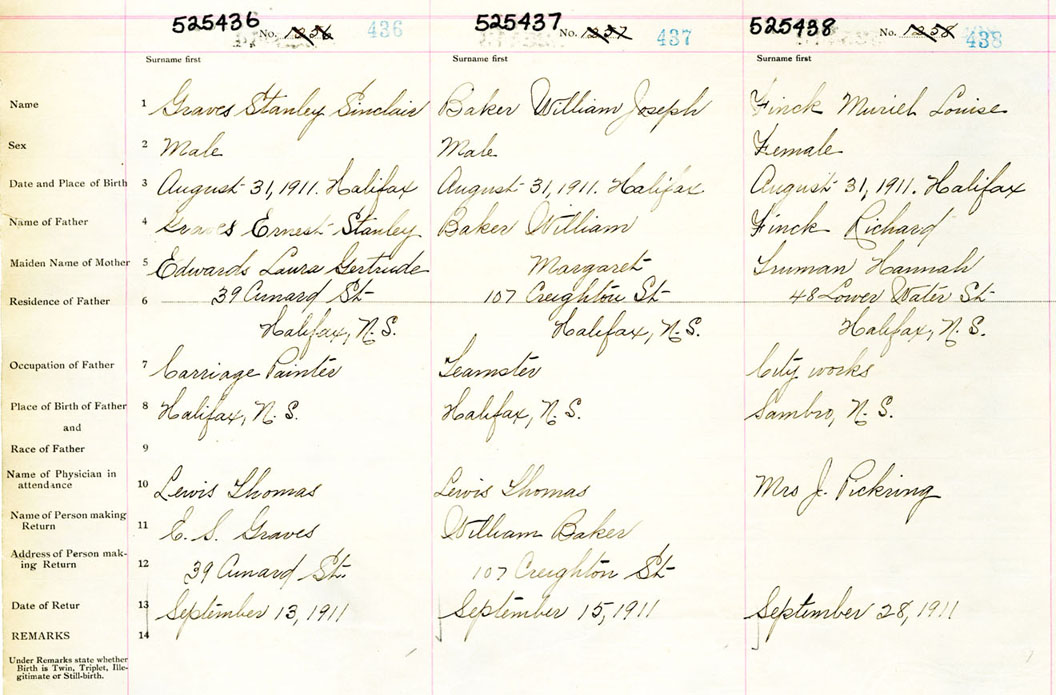 525436 No. 1236 436 525437 No. 1237 437 525438 No. 1238 438
Surname first Surname first Surname first
Name 1 Graves Stanley Sinclair Baker William Joseph Finck Muriel Louise
Sex 2 Male Male Female
Date and Place of Birth 3 August 31, 1911. Halifax August 31, 1911. Halifax August 31, 1911. Halifax
Name of Father 4 Graves Ernest Stanley Baker William Finck Richard
Maiden Name of Mother 5 Edwards Laura Gertrude Margaret Truman Hannah
Residence of Father 6 39 Cunard St 107 Creighton St 48 Lower Water St
Halifax, N.S. Halifax, N.S. Halifax, N.S.
Occupation of Father 7 Carriage Painter Teamster City works
Place of Birth of Father 8 Halifax, N.S. Halifax, N.S. Sambro, N.S.
and
Race of Father 9
Name of Physician in
attendance 10 Lewis Thomas Lewis Thomas Mrs J. Pickring
Name of Person making
Return 11 E. S. Graves William Baker
Address of Person mak-
ing Return 12 39 Cunard St. 107 Creighton St
Date of Retur 13 September 13, 1911 September 15, 1911 September 28, 1911
REMARKS 14
Under Remarks state whether
Birth is Twin, Triplet, Ille-
gitimate or Still-birth.